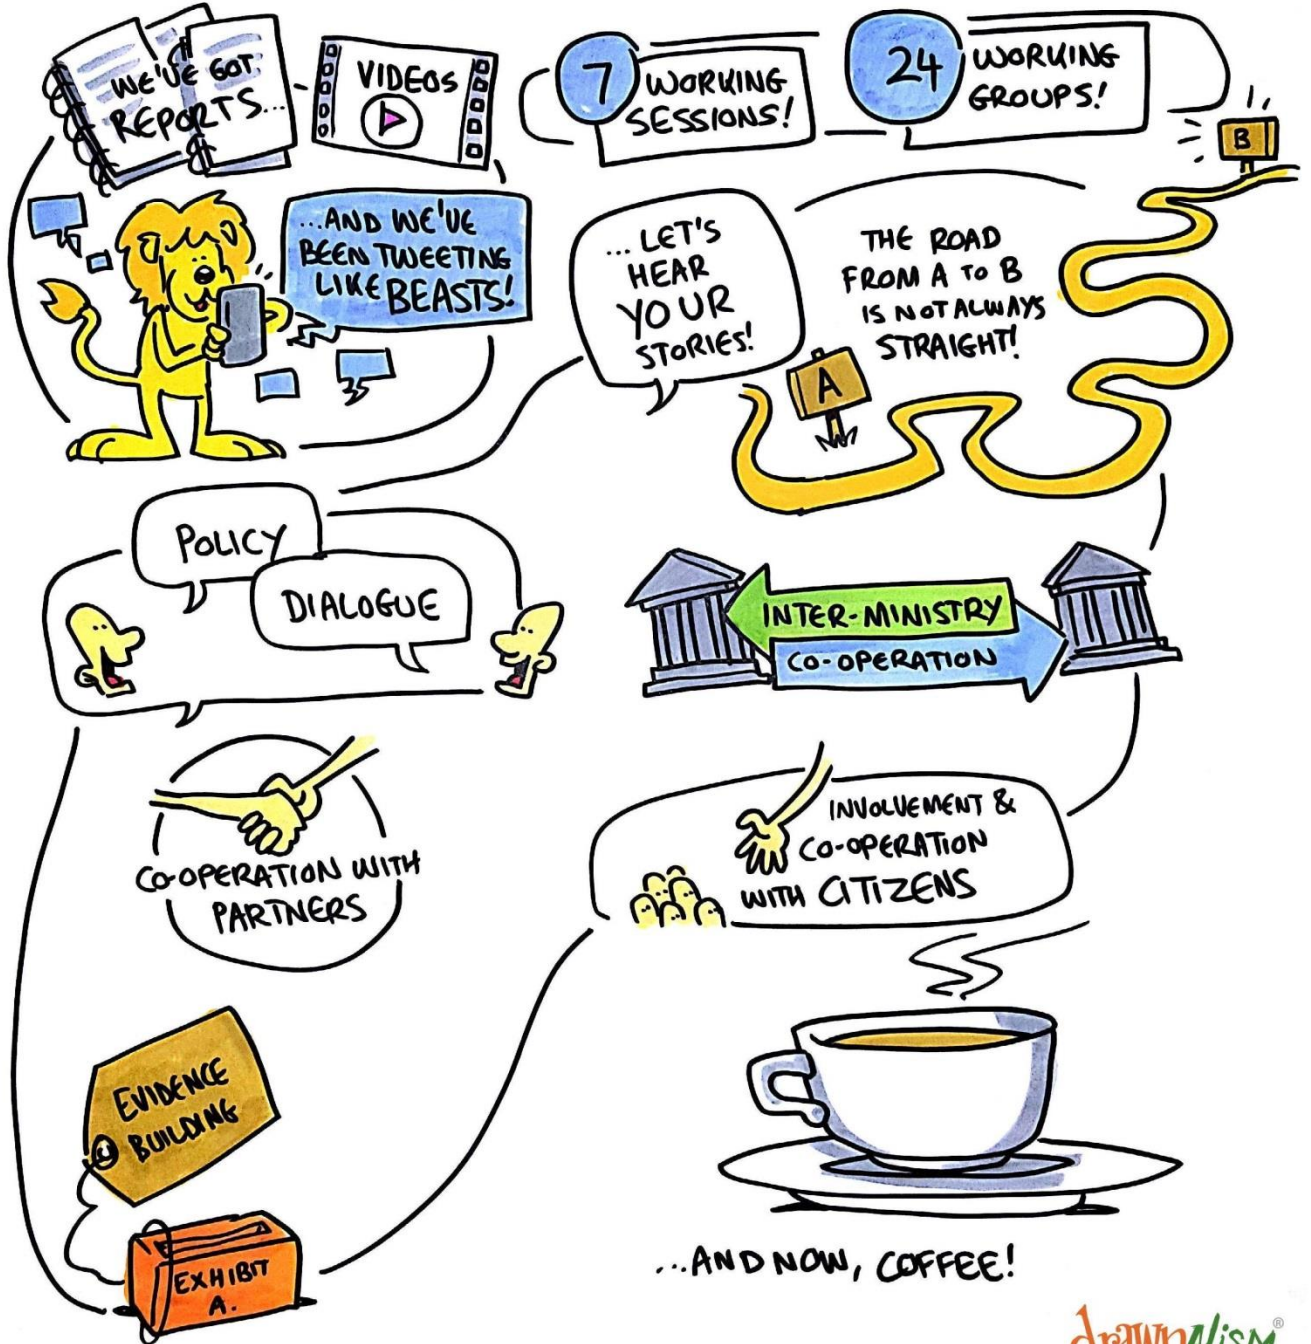 WE'VE GOT
REPORTS...
VIDEOS
7
WORKING
SESSIONS!
24
WORKING
GROUPS!
...AND WE'VE
BEEN TWEETING
LIKE BEASTS!
...LET'S
HEAR
YOUR
STORIES!
THE ROAD
FROM A TO B
IS NOT ALWAYS
STRAIGHT!
A
B
POLICY
DIALOGUE
INTER-MINISTRY
CO-OPERATION
CO-OPERATION WITH
PARTNERS
INVOLVEMENT &
CO-OPERATION
WITH CITIZENS
EVIDENCE
BUILDING
EXHIBIT
A.
...AND NOW, COFFEE!
drawnalism®